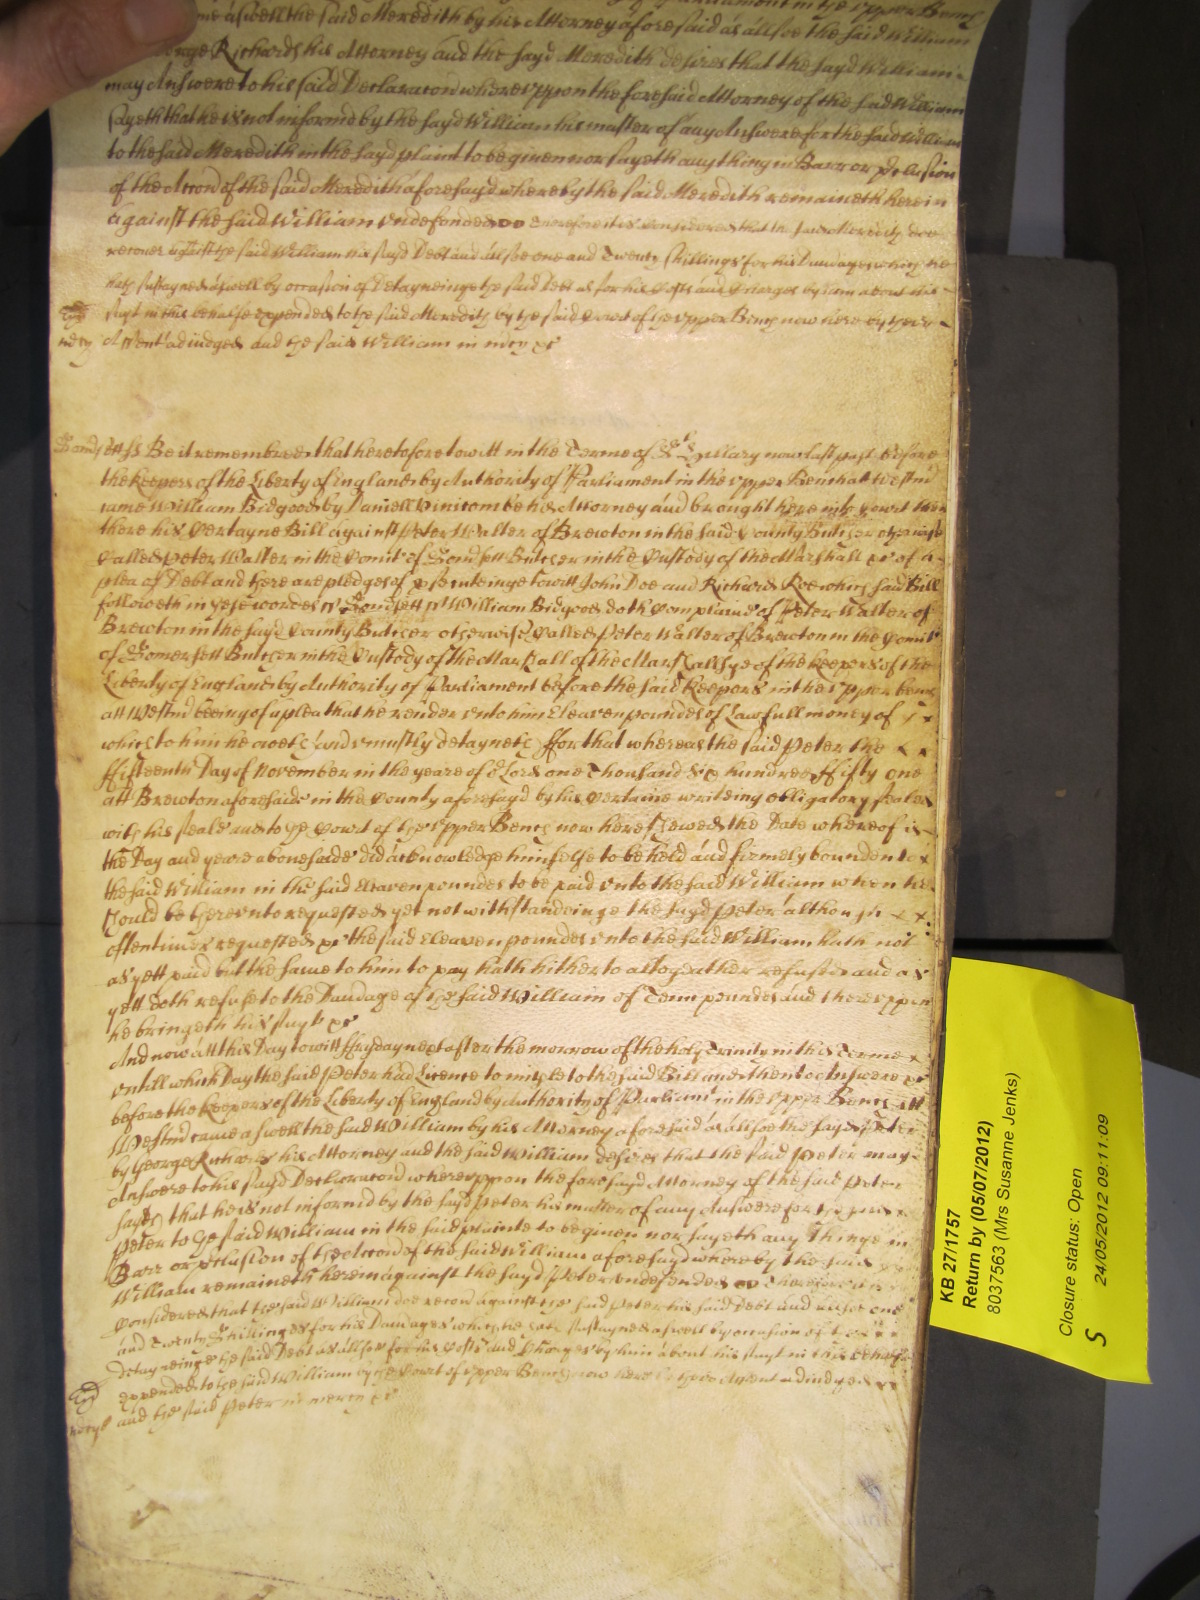 me aswell the said Meredith by his Attorney aforesaid as allsoe the said William
Richards his Attorney and the sayd Meredith desires that the sayd William
may Answere to his said Declaracon whereuppon the foresaid Attorney of the said William
sayeth that he is not informed by the sayd William his master of any Answere for the said William
to the said Meredith in the sayd plaint to be given nor sayeth any thing in Barr or p'clusion
of the Accon of the said Meredith aforesayd whereby the said Meredith remaineth herein
against the said William undefended Therefore it is considered that the said Meredith doe
recover against the said William his sayd Debt and alsoe one and Twenty shillings for his Damages which he
hath sustayned aswell by occasion of Detayneinge the said Debt as for his Costs and Charges by him about his
suyt in this behalfe expended to the said Meredith by the said Court of the upper Bench now here by theire
mercy Assent adiudged and the said William in mercy &c
Somsett ss Be it remembred that heretofore to witt in the Terme of St Hillary now last past before
the keepers of the Liberty of England by Authority of Parliament in the upper Bench att Westmr
came William Bidgood by Daniell his Attorney and brought here into Court then
there his Certayne Bill against Peter Walter of Brewton in the said County Butcher otherwise
Called Peter Walter in the Comit' of Somsett Butcher in the Custody of the Marshall &c of a
plea of Debt and there are pledges of p'secuteinge to witt John Doe and Richard Roe which said Bill
followeth in these wordes ss Somsett ss William Bidgood doth Complaine of Peter Walter of
Brewton in the sayd County Butcher otherwise Called Peter Walter of Brewton in the Comit'
of Somersett Butcher in the Custody of the Marshall of the Marshallsye of the keepers of the
Liberty of England by Authority of Parliament before the said keepers in the upper bench
att Westmr beeing of a plea that he render unto him Eleaven poundes of Lawfull money of
which to him he oweth and uniustly detayneth ffor that whereas the said Peter the
ffifteenth Day of November in the yeare of or Lord one Thousand six hundred ffifty one
att Brewton aforesaide in the County aforesayd by his Certaine writeing obligatory sealed
with his seale and to ye Court of the upper Bench now here shewed the Date whereof is
the Day and yeare abovesaide did acknowledge himselfe to be held and firmely bounden to
the said William in the said Eleaven poundes to be paid unto the said William when hee
should be thereunto requested yet notwithstandeinge the sayd Peter although
oftentimes requested &c the said Eleaven poundes unto the said William hath not
as yett paid but the same to him to pay hath hitherto altogeather refused and as
yett doth refuse to the Damage of the said William of Tenn poundes and thereuppon
he bringeth his suyt &c
And now att this Day to witt ffryday next after the morrow of the holy Trinity in this Terme
untill which Day the said Peter had Licence to imparle to the said Bill and then to Answere &c
before the keepers of the Liberty of England by Authority of Parliamt in the upper Bench att
Westmr came aswell the said William by his Attorney aforesaid as alsoe the sayd Peter
by George his Attorney and the said William desires that the said Peter may
Answere to his sayd Declaracon whereuppon the foresayd Attorney of the said Peter
sayeth that he is not informed by the sayd Peter his master of any Answere for the
Peter to ye said William in the said plainte to be given nor sayeth any Thinge in
Barr or p'clusion of the Accon of the said William aforesayd whereby the said
William remaineth herein against the sayd Peter undefended Therefore it is
Considered that the said William doe recover against the said Peter his said Debt and alsoe one
and Twenty Shillinges for his Damages which he hath sustayned aswell by occasion of
detayneinge the said Debt as allsoe for his Costs and Charges by him about his suyt in this behalfe
expended to the said William by the Court of upper Bench now here by theire Assent adiudged
mercy and the said Peter in mercy &c
KB 27/1757
Return by (05/07/2012)
8037563 (Mrs Susanne Jenks)
Closure status: Open
S 24/05/2012 09:11:09